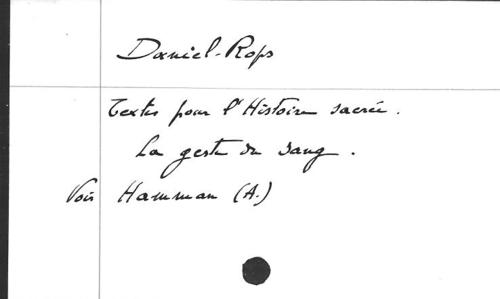 Daniel-Rops
Textes pour l'Histoire sacrée.
La geste du sang.
Voir Hamman (A.)